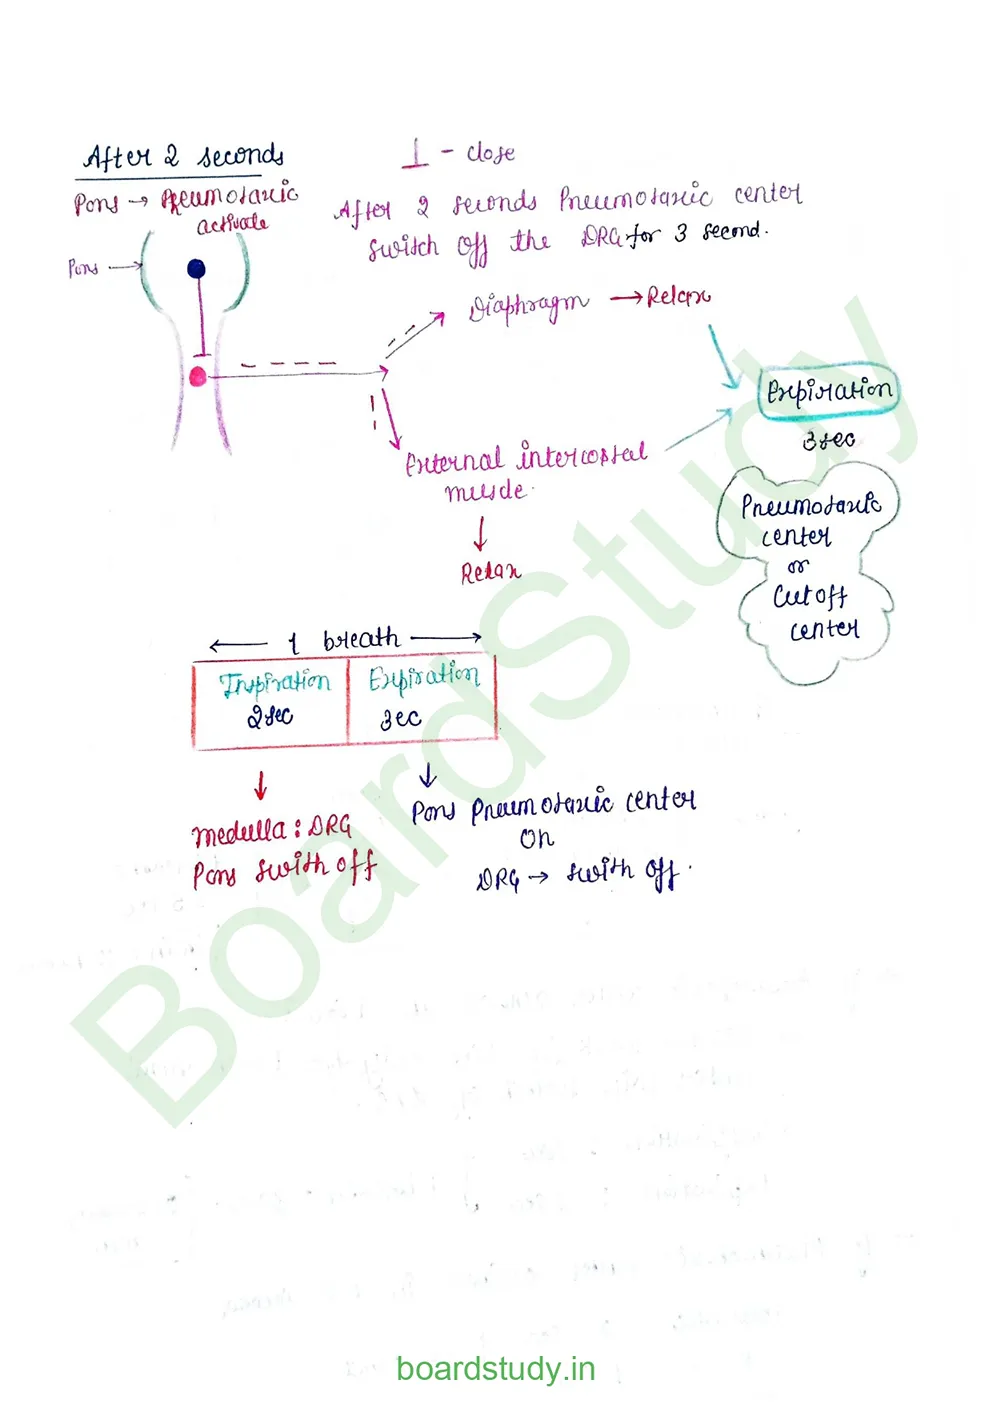 After 2 seconds
Pons → Pneumotaxic
activate
Pons →
⊥ - close
After 2 seconds Pneumotaxic center
switch off the DRG for 3 second.
Diaphragm → Relax
Expiration
3 sec
External intercostal
muscle.
↓
Relax
Pneumotaxic
center
or
Cutoff
center
← 1 breath →
Inspiration
2 sec
Expiration
3ec
Medulla : DRG
Pons swith off
Pons Pneumotaxic center
On
DRG → swith off.
BoardStudy
boardstudy.in